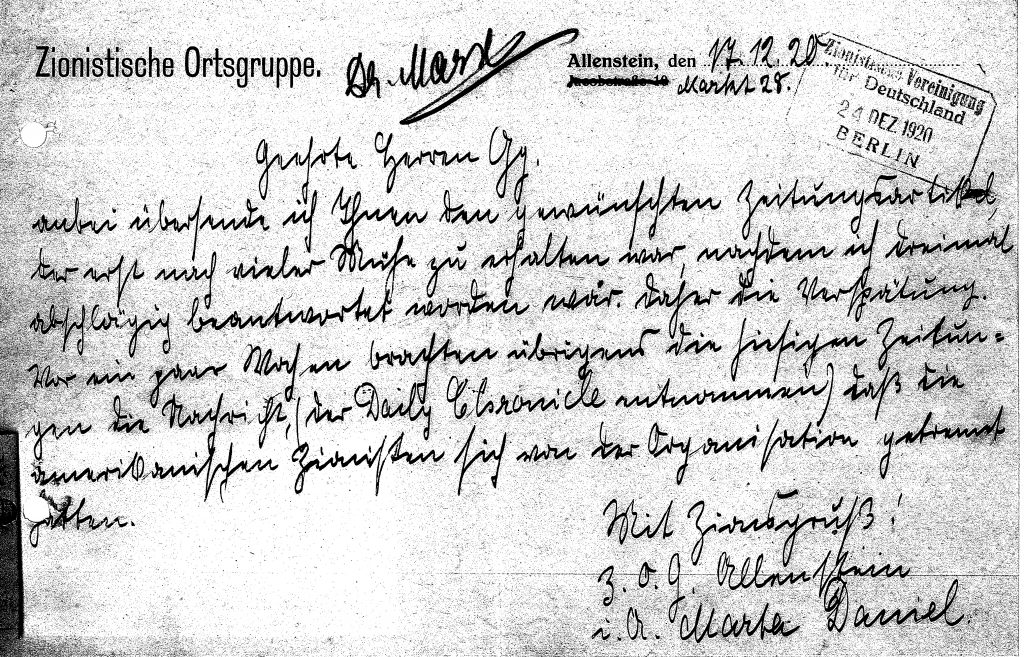 Zionistische Ortsgruppe.
Dr. Marx
Allenstein, den 17. 12. 20.
Jacobstraße 10
Markt 28.
Zionistische Vereinigung
für Deutschland
24 DEZ 1920
BERLIN
Geehrte Herren Gg.
anbei übersende ich Ihnen den gewünschten Zeitungsartikel,
der erst nach vieler Mühe zu erhalten war, nachdem ich dreimal
abschlägig beantwortet worden war. Daher die Verspätung.
Vor ein paar Wochen brachten übrigens die hiesigen Zeitun=
gen die Nachricht, (der Daily Chronicle entnommen) daß die
amerikanischen Zionisten sich von der Organisation getrennt
hätten.
Mit Zionsgruß!
Z. O. G. Allenstein
i. A. Marta Daniel.